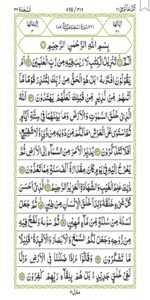 السجدة ٣٢
بِسْمِ اللهِ الرَّحْمٰنِ الرَّحِيْمِ
الٓمّٓ تَنْزِيْلُ الْكِتٰبِ لَا رَيْبَ فِيْهِ مِنْ رَّبِّ الْعٰلَمِيْنَ اَمْ
يَقُوْلُوْنَ افْتَرٰىهُ بَلْ هُوَ الْحَقُّ مِنْ رَّبِّكَ لِتُنْذِرَ قَوْمًا مَّآ
اَتٰىهُمْ مِّنْ نَّذِيْرٍ مِّنْ قَبْلِكَ لَعَلَّهُمْ يَهْتَدُوْنَ اَللهُ
الَّذِيْ خَلَقَ السَّمٰوٰتِ وَالْاَرْضَ وَمَا بَيْنَهُمَا فِيْ سِتَّةِ اَيَّامٍ
ثُمَّ اسْتَوٰى عَلَى الْعَرْشِ مَا لَكُمْ مِّنْ دُوْنِهٖ مِنْ وَّلِيٍّ وَّلَا
شَفِيْعٍ اَفَلَا تَتَذَكَّرُوْنَ يُدَبِّرُ الْاَمْرَ مِنَ السَّمَآءِ اِلَى الْاَرْضِ
ثُمَّ يَعْرُجُ اِلَيْهِ فِيْ يَوْمٍ كَانَ مِقْدَارُهٗٓ اَلْفَ سَنَةٍ مِّمَّا تَعُدُّوْنَ
ذٰلِكَ عٰلِمُ الْغَيْبِ وَالشَّهَادَةِ الْعَزِيْزُ الرَّحِيْمُ الَّذِيْٓ
اَحْسَنَ كُلَّ شَيْءٍ خَلَقَهٗ وَبَدَاَ خَلْقَ الْاِنْسَانِ مِنْ طِيْنٍ ثُمَّ جَعَلَ
نَسْلَهٗ مِنْ سُلٰلَةٍ مِّنْ مَّآءٍ مَّهِيْنٍ ثُمَّ سَوّٰىهُ وَنَفَخَ فِيْهِ مِنْ
رُّوْحِهٖ وَجَعَلَ لَكُمُ السَّمْعَ وَالْاَبْصَارَ وَالْاَفْئِدَةَ قَلِيْلًا مَّا
تَشْكُرُوْنَ وَقَالُوْٓا ءَاِذَا ضَلَلْنَا فِي الْاَرْضِ ءَاِنَّا
لَفِيْ خَلْقٍ جَدِيْدٍ بَلْ هُمْ بِلِقَآئِ رَبِّهِمْ كٰفِرُوْنَ